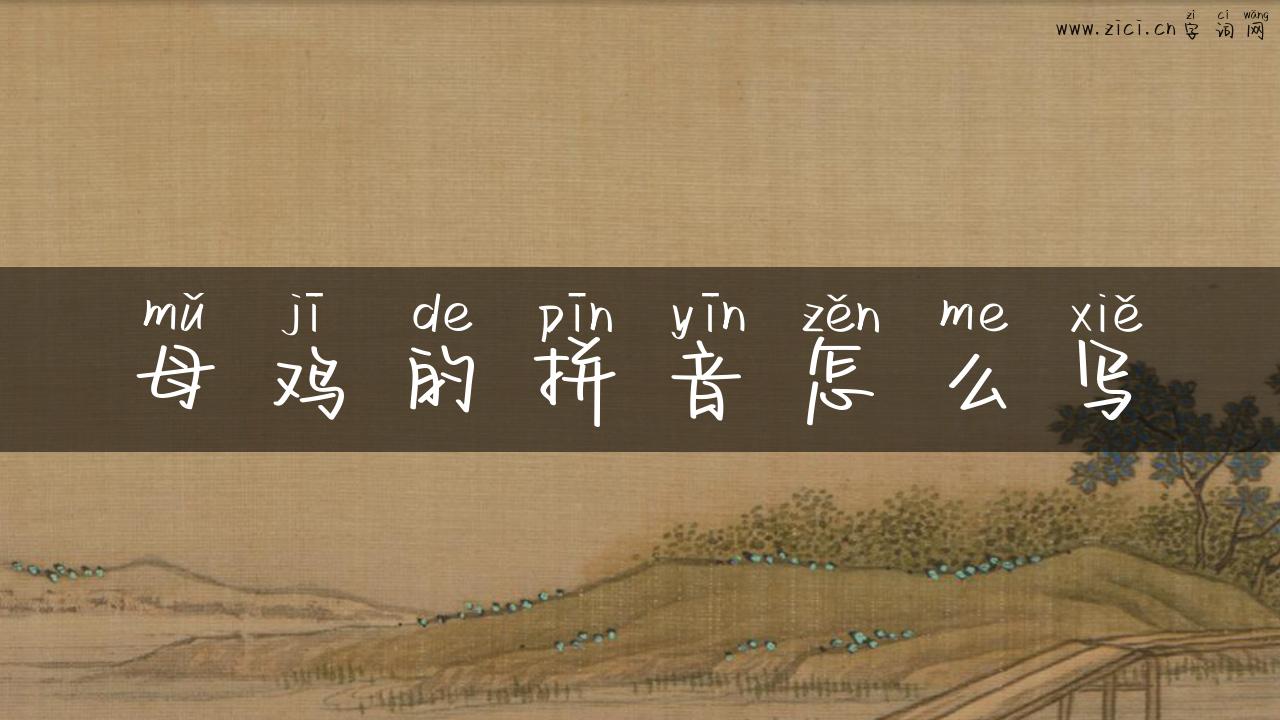 zì cí wǎng
www.zici.cn字词网
mǔ jī de pīn yīn zěn me xiě
母鸡的拼音怎么写